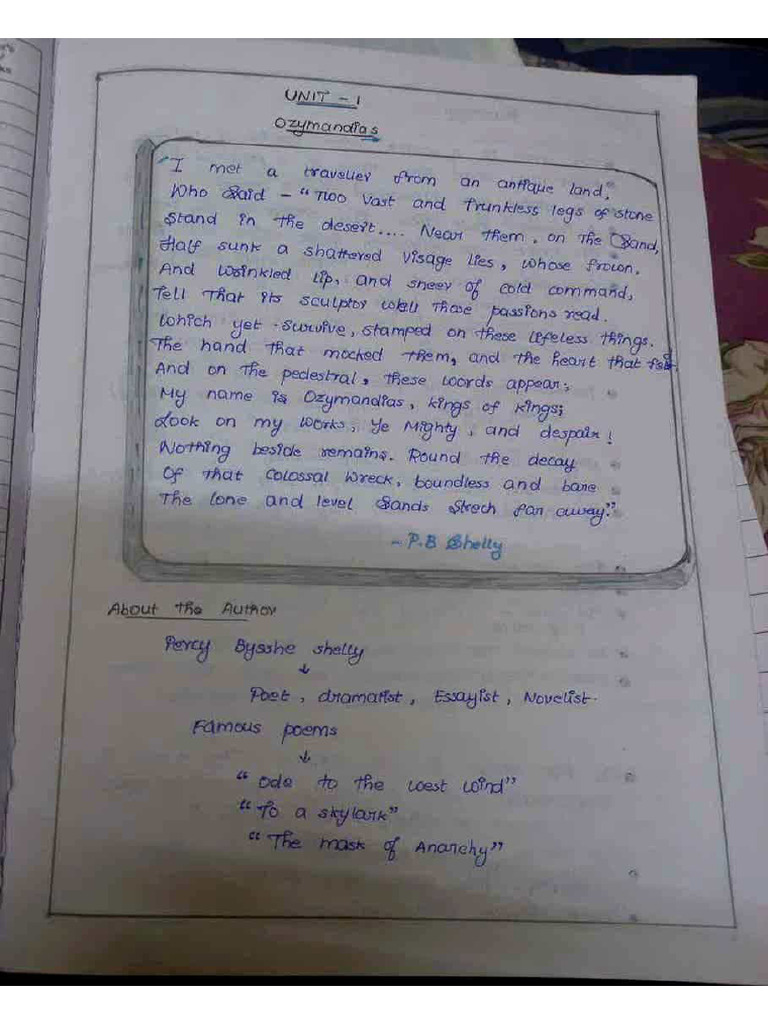 UNIT - 1
Ozymandias
I met a traveller from an antique land,
Who Said - "Two Vast and trunkless legs of stone
Stand in the desert.... Near them, on the Sand,
Half sunk a shattered visage lies, whose frown,
And wrinkled lip, and sneer of cold command,
Tell That its sculptor well those passions read.
Which yet survive, stamped on these lifeless things.
The hand that mocked them, and the heart that fed.
And on the pedestral, these words appear;
My name is Ozymandias, kings of kings;
Look on my works, Ye Mighty, and despair!
Nothing beside remains. Round the decay
Of that Colossal Wreck, boundless and bare
The lone and level Sands Strech far away."
- P.B Shelly
About the Author
Percy Bysshe shelly
↓
Poet, dramatist, Essayist, Novelist.
Famous poems
↓
"Ode to the west wind"
"To a skylark"
"The mask of Anarchy"